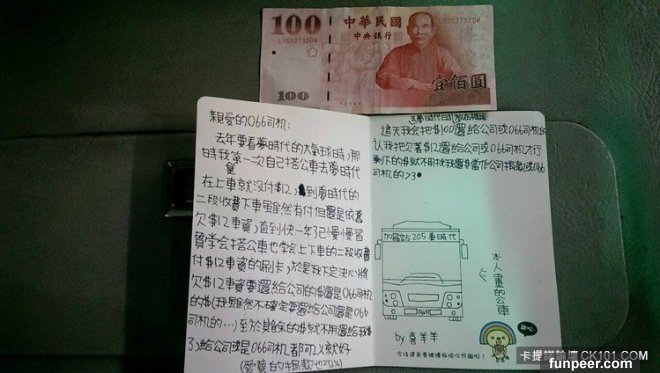 100
LU055273ZQW
中華民國
中央銀行
LU055273ZQW
博愛
壹佰圓
100
親愛的066司机:
去年要看夢時代的大氣球時,那
時我第一次自己搭公車去夢時代
在上車就沒付$12,到夢時代的
二段收費下車雖然有付但還是依舊
欠$12車資,直到快一年了已慢慢習
慣學會搭公車也學會上下車的二段收費
付$12車資的刷卡,於是我下定決心將
欠$12車資要還給公司的$還是066司机
的$(我雖然不確定要還給公司還是066
司机的…)至於剩餘的$就不用還給我
了,給公司或是066司机都可以就好
(愛莫的捐款也可以)
這天我會把$100還給公司或066司机
認我把欠著$12還給公司或066司机才行
剩下的$就不用找我還$當作公司捐款或066
司机的>3
加昌站 205 夢時代
本人畫的公車
by 喜羊羊
今後還是要繼續做唷你挺個啦!
卡提諾論壇 CK101.COM
funpeer.com